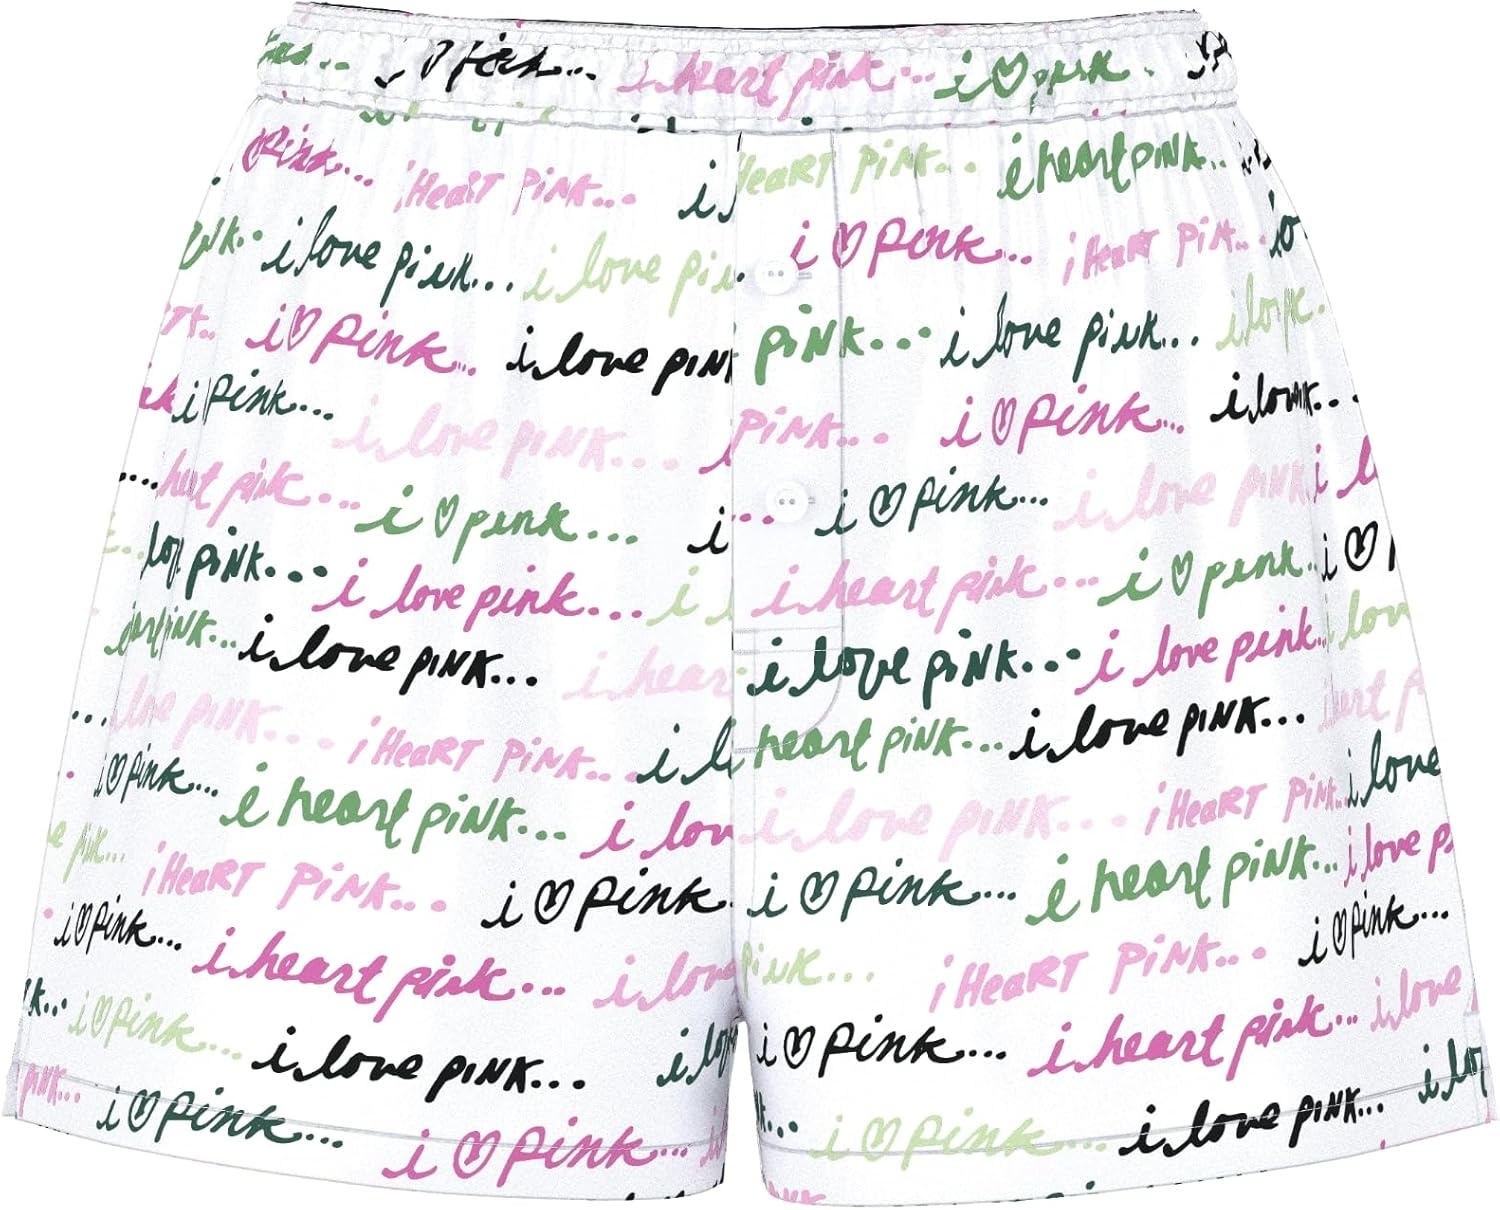 i heart pink... i ♡ pink.
pink... i HeaRT PiNK... i HeaRT PiNK... i heart piNK...
i love pink... i love pin i ♡ pink... i HeaRT PiNK...
i ♡ pink... i love piNK piNK... i love pink... i love
i ♡ pink... i love piNK... PiNK... i ♡ pink... i love
heart pink... i ♡ pink... i i ♡ pink... i love piNK
love piNK... i love pink... i i heart pink... i ♡ pink... i ♡
heart piNK... i love piNK... i heart i love piNK... i love pink... i love
love piNK... i HeaRT PiNK... i l heart piNK... i love piNK... heart p
i ♡ pink... i heart piNK... i lov i love piNK... i HeaRT PiNK... i love
i HeaRT PiNK... i ♡ pink... i ♡ pink... i heart piNK... i love p
i ♡ pink... i heart pink... i love pink... i HeaRT PiNK... i ♡ pink...
K... i ♡ pink... i love piNK... i lo i ♡ pink... i heart pink... i love
PiNK... i ♡ pink... i ♡ pink... i ♡ pink... i love piNK... i lo